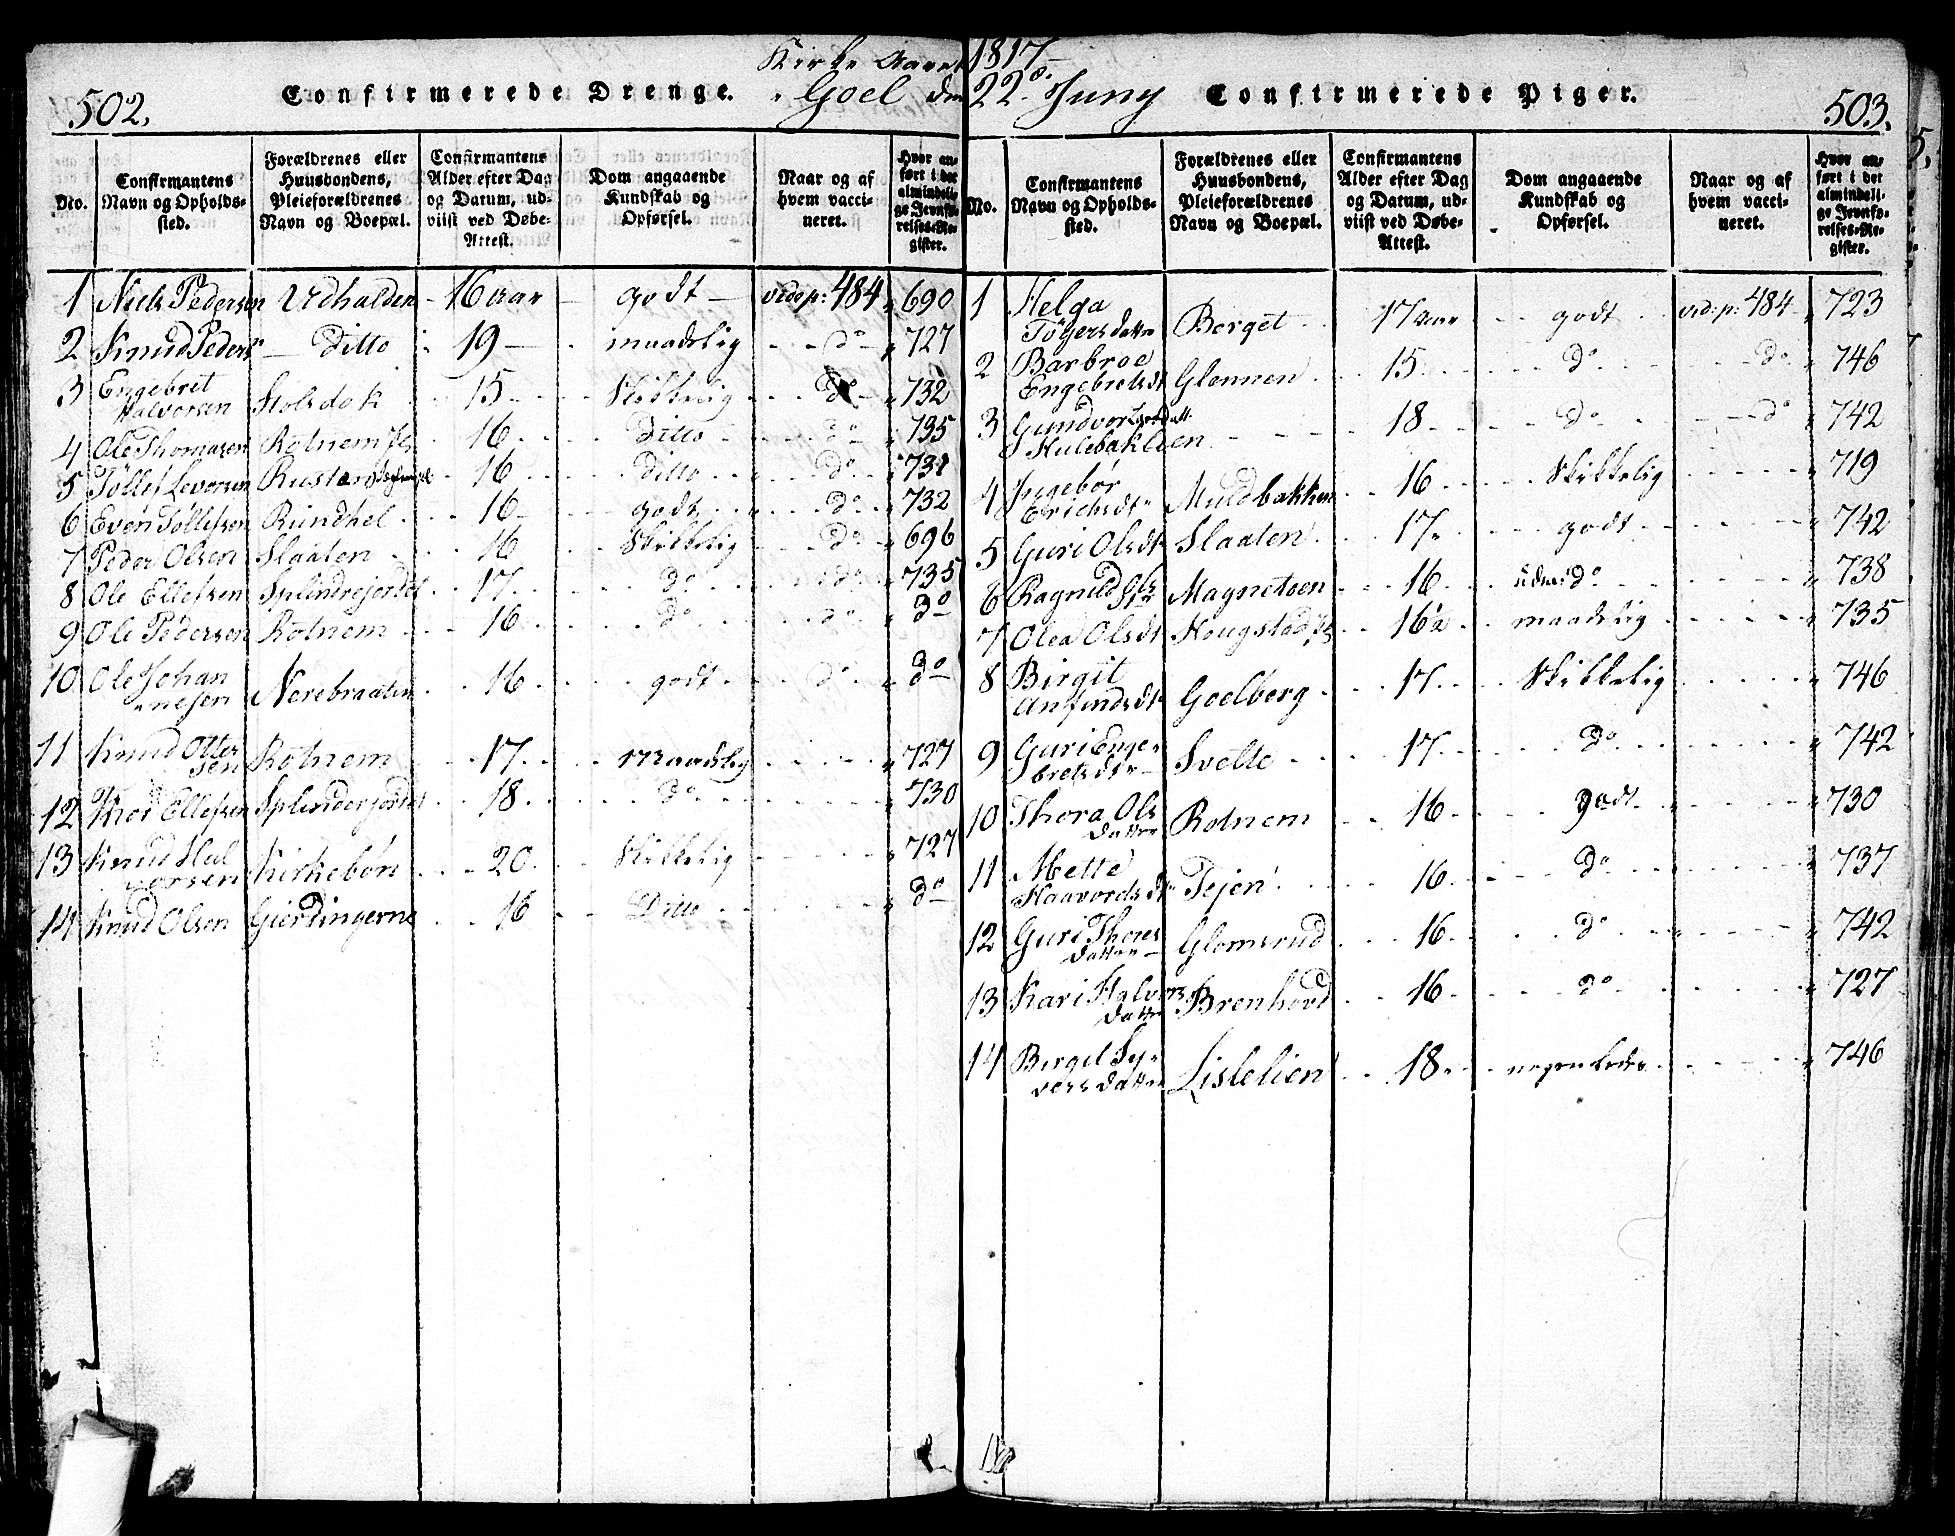 Kirke Aaret 1817
502. Confirmerede Drenge. Goel den 22de Juny Confirmerede Piger. 503.
No. Confirmantens Navn og Opholds-sted. Forældrenes eller Huusbondens, Pleieforældrenes Navn og Boepæl. Confirmantens Alder efter Dag og Datum, ud-viist ved Døbe-Attest. Dom angaaende Kundskab og Opførsel. Naar og af hvem vacci-neret. Hvor an-ført i det almindeli-ge Jevnfø-relses-Re-gister.
1 Niels Pedersen Udhalden 16 aar godt vide p: 484 690
2 Knud Peders: Ditto 19 maadelig do 727
3 Engebret Halvorsen Stolsdok 15 Skikkelig do 732
4 Ole Thomasen Rotnem 16 Ditto do 735
5 Tøllef Leversen Rustan 16 Ditto do 731
6 Even Tøllefsen Rundhel 16 godt do 732
7 Peder Olsen Slaaten 16 Skikkelig do 696
8 Ole Ellefsen Splindrejordet 17 do do 735
9 Ole Pedersen Rotnem 16 do do do
10 Ole Johan
nesen Nerebraaten 16 godt do do
11 Knud Otter
sen Rotnem 17 Maadelig 727
12 Thor Ellefsen Splinderjordet 18 do 730
13 Knud Hal
vorsen Kirkebøn 20 Skikkelig 727
14 Knud Olsen Gierdingerne 16 Ditto do
No. Confirmantens Navn og Opholds-sted. Forældrenes eller Huusbondens, Pleieforældrenes Navn og Boepæl. Confirmantens Alder efter Dag og Datum, ud-viist ved Døbe-Attest. Dom angaaende Kundskab og Opførsel. Naar og af hvem vacci-neret. Hvor an-ført i det almindeli-ge Jevnfø-relses-Re-gister.
1 Helga
Tøgersdatter Berget 17 aar godt vid: p: 484 723
2 Barbroe
Engebretsdt Glemmen 15 do do 746
3 Gundvor
Hulebakleen 18 do do 742
4 Ingebør
Erichsdt Muldbakken 16 Skikkelig 719
5 Guri Olsdt Slaaten 17 godt 742
6 Ragnild Magneteen 16 do 738
7 Olea Olsdt Hougstad 16 maadelig 735
8 Birgit
Anfindsdt Goelberg 17 Skikkelig 746
9 Guri Enge
bretsdt Svelte 17 do 742
10 Thora Ols
datter Rotnem 16 godt 730
11 Mette
Haavordsdt Tejen 16 do 737
12 Guri Thores
datter Glomsrud 16 do 742
13 Kari Halvors
datter Brenhovd 16 do 727
14 Bergit Sy
versdatter Lislelien 18 746